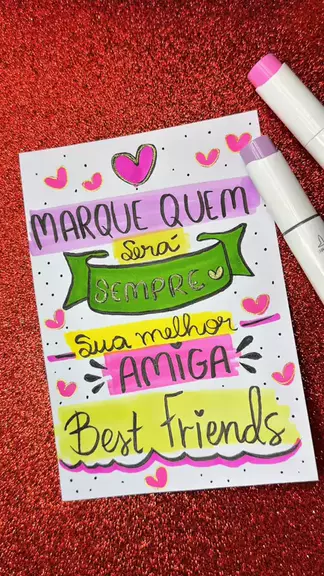 MARQUE QUEM
Será
SEMPRE
Sua melhor
AMIGA
Best Friends